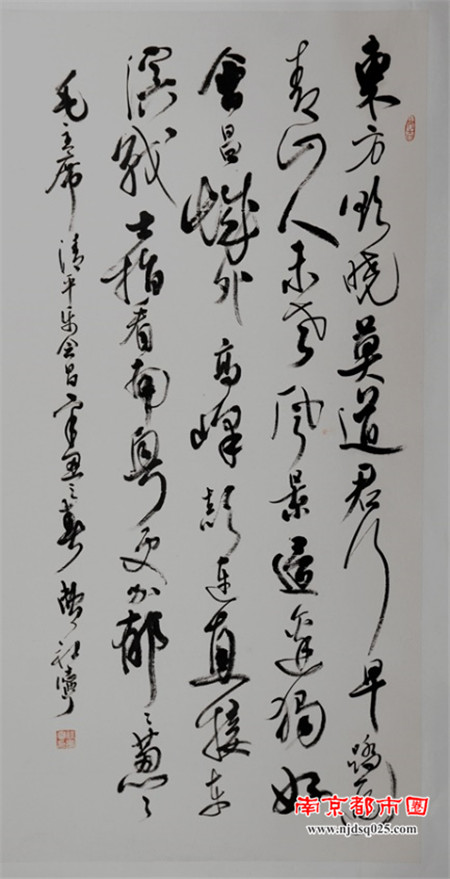 東方欲曉莫道君行早踏遍
青山人未老風景這邊獨好
會昌城外高峰顛連直接东
溟戰士指看南粵更加郁〻葱〻
毛主席清平乐会昌辛丑之春
南京都市圈
www.njdsq025.com